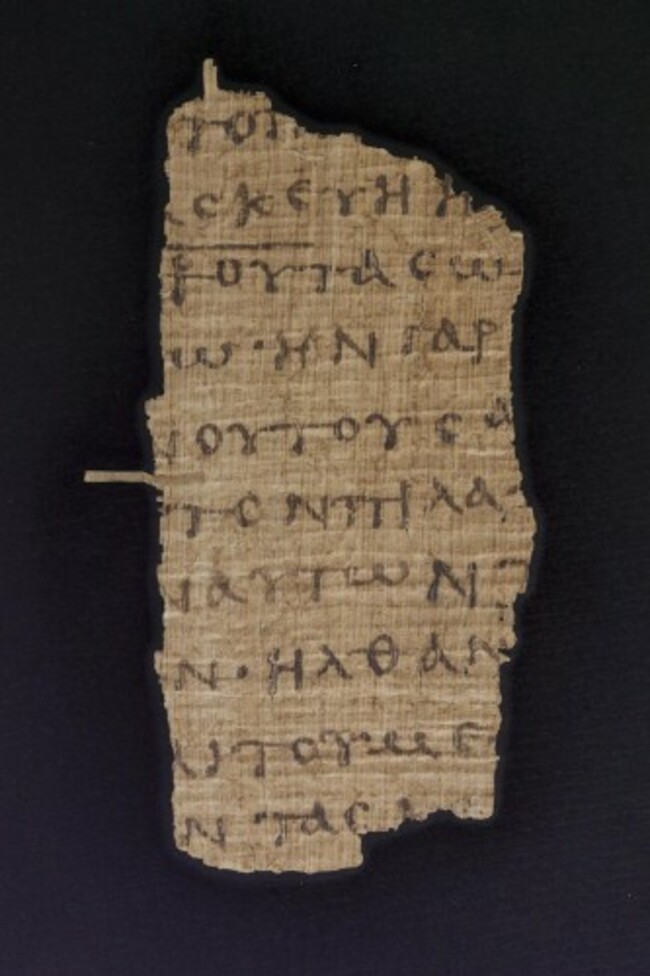 ΤΟΠ
ϹΚΕΥΗ
ΡΟΥΤΑϹΩ
Ω·ΗΝΓΑΡ
ΝΟΥΤΟΥϹΑ
ΤΟΝΠΗΛΑ
ΝΑΥΤΩΝ
Ν·ΗΛΘΑΝ
ΙΤΟΥΜΕ
Ν ΤΑϹ